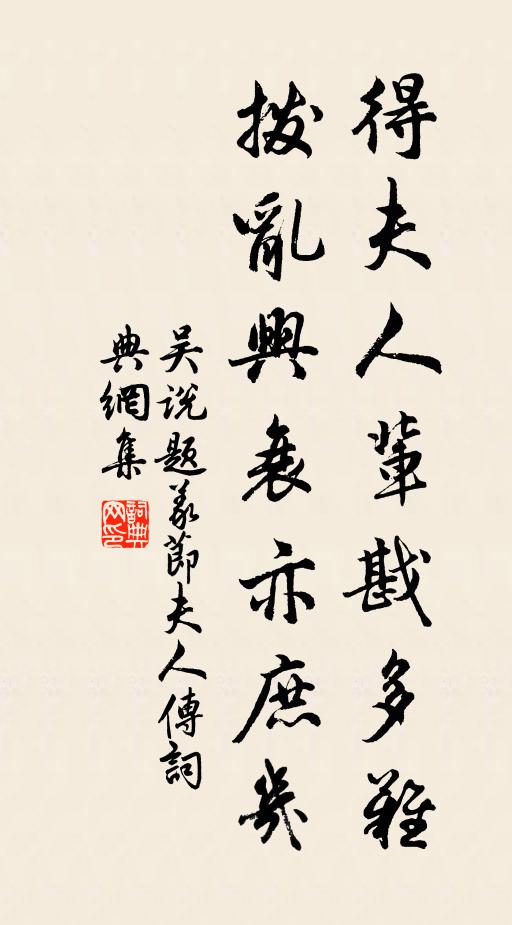 得夫人輩戡多難
撥亂興衰亦庶幾
吴説題義節夫人傳詞
典網集
詞典網印